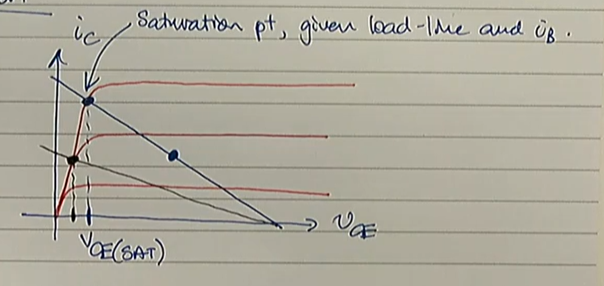 Saturation pt, given load-line and iB.
iC
vCE
VCE(SAT)